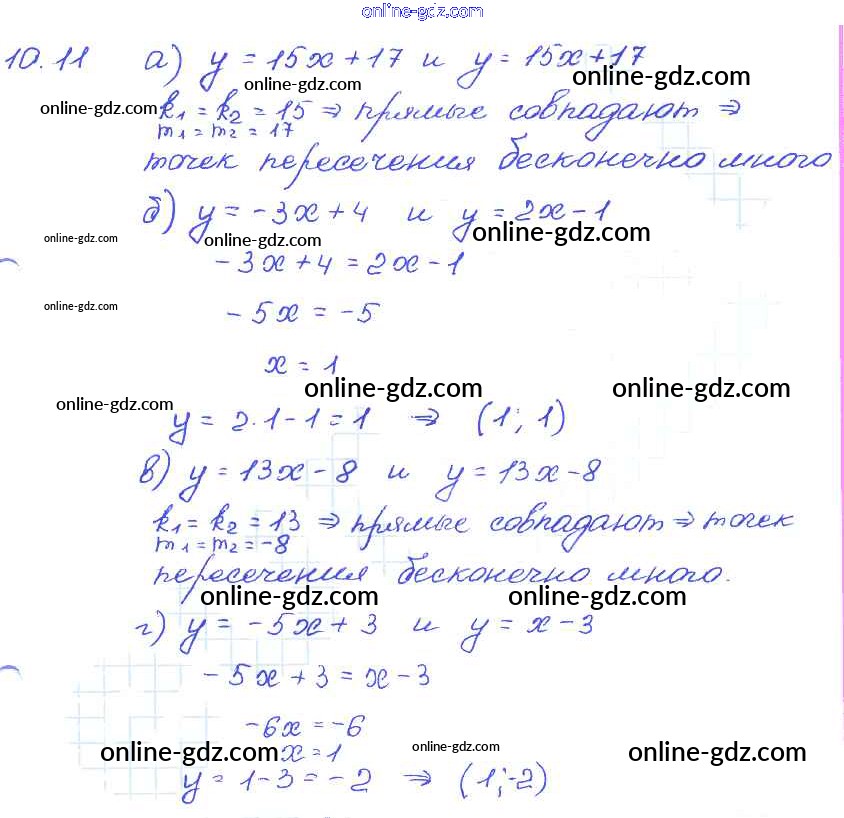 online-gdz.com
10.11 а) y = 15x + 17 и y = 15x + 17
online-gdz.com online-gdz.com
online-gdz.com k₁ = k₂ = 15 ⇒ прямые совпадают ⇒
m₁ = m₂ = 17
точек пересечения бесконечно много
б) y = -3x + 4 и y = 2x - 1
online-gdz.com online-gdz.com online-gdz.com
-3x + 4 = 2x - 1
online-gdz.com -5x = -5
x = 1
online-gdz.com online-gdz.com
online-gdz.com
y = 2·1 - 1 = 1 ⇒ (1; 1)
в) y = 13x - 8 и y = 13x - 8
k₁ = k₂ = 13 ⇒ прямые совпадают ⇒ точек
m₁ = m₂ = -8
пересечения бесконечно много.
online-gdz.com online-gdz.com
г) y = -5x + 3 и y = x - 3
-5x + 3 = x - 3
-6x = -6
online-gdz.com x = 1 online-gdz.com online-gdz.com
y = 1 - 3 = -2 ⇒ (1; -2)